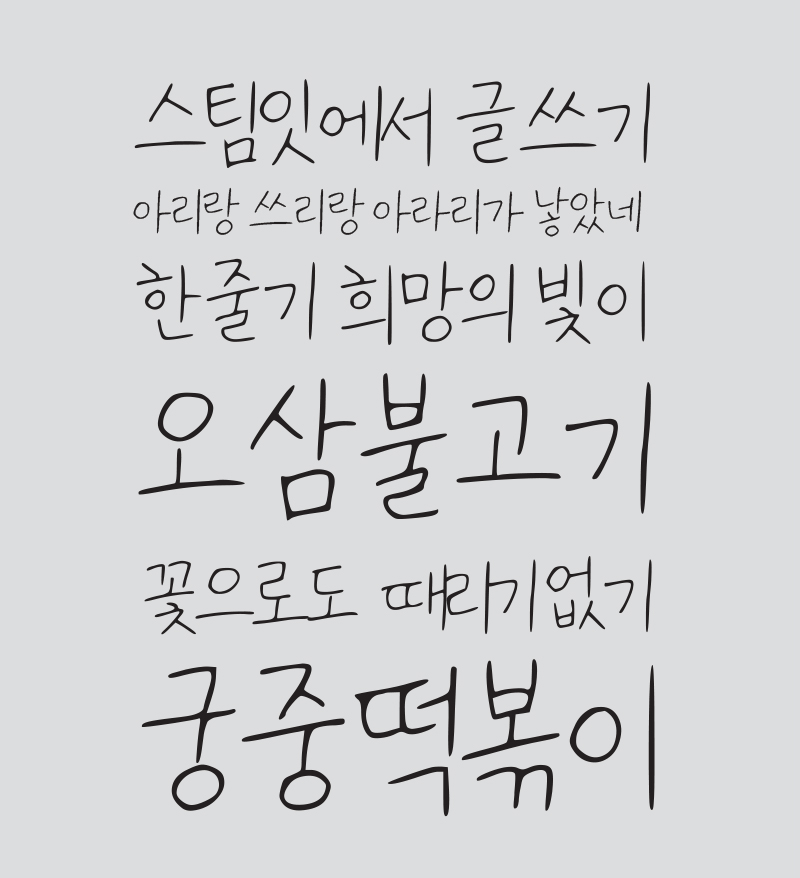 스팀잇에서 글쓰기
아리랑 쓰리랑 아라리가 낳았네
한줄기 희망의 빛이
오삼불고기
꽃으로도 때리기없기
궁중떡볶이